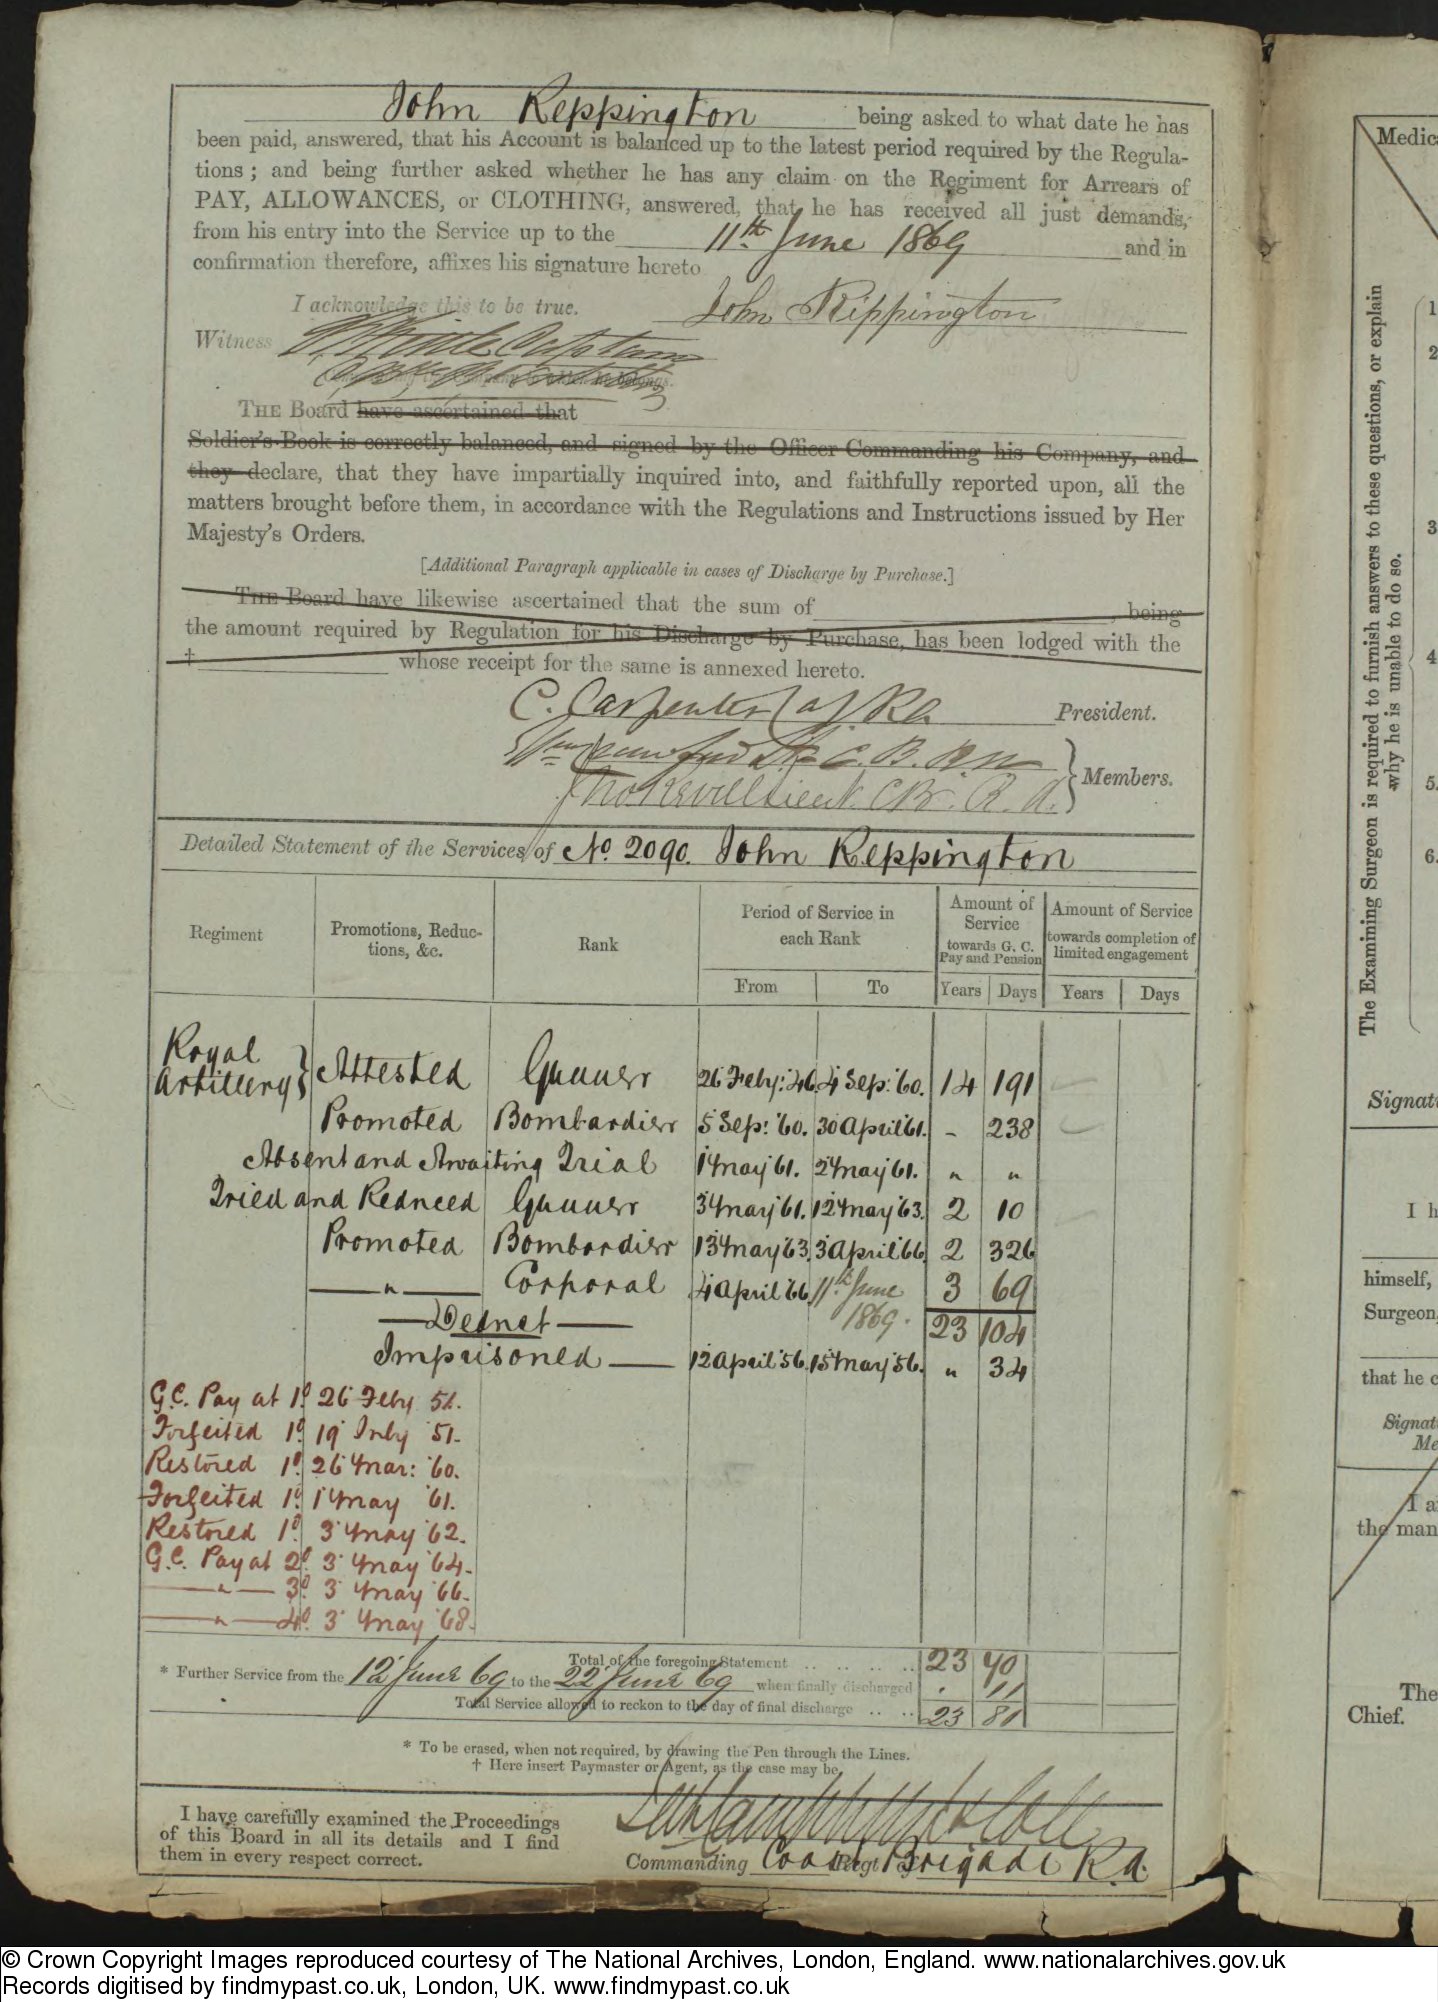 John Reppington being asked to what date he has
been paid, answered, that his Account is balanced up to the latest period required by the Regula-
tions ; and being further asked whether he has any claim on the Regiment for Arrears of
PAY, ALLOWANCES, or CLOTHING, answered, that he has received all just demands,
from his entry into the Service up to the 11th June 1869 and in
confirmation therefore, affixes his signature hereto
I acknowledge this to be true. John Rippington
Witness Captain
THE Board have ascertained that
Soldier's Book is correctly balanced, and signed by the Officer Commanding his Company, and
they declare, that they have impartially inquired into, and faithfully reported upon, all the
matters brought before them, in accordance with the Regulations and Instructions issued by Her
Majesty's Orders.
[Additional Paragraph applicable in cases of Discharge by Purchase.]
THE Board have likewise ascertained that the sum of , being
the amount required by Regulation for his Discharge by Purchase, has been lodged with the
† whose receipt for the same is annexed hereto.
C. Carpenter R.A. President.
C.B. R.A. Members.
C.B. R.A.
Detailed Statement of the Services of No. 2090. John Reppington
Regiment
Promotions, Reduc-
tions, &c.
Rank
Period of Service in
each Rank
From To
Amount of
Service
towards G. C.
Pay and Pension
Years Days
Amount of Service
towards completion of
limited engagement
Years Days
Royal
Artillery } Attested Gunner 26 Feby: '46. 4 Sep: '60. 14 191
Promoted Bombardier 5 Sep: '60. 30 April '61. - 238
Absent and Awaiting Trial 1 May '61. 2 May '61. " "
Tried and Reduced Gunner 3 May '61. 12 May '63. 2 10
Promoted Bombardier 13 May '63. 3 April '66. 2 326
— " — Corporal 4 April '66. 11th June 1869. 3 69
— Deduct — 23 104
Imprisoned — 12 April '56. 15 May '56. " 34
G.C. Pay at 1d 26 Feby 51.
Forfeited 1d 19 July '51.
Restored 1d 26 Mar: '60.
Forfeited 1d 1 May '61.
Restored 1d 3 May '62.
G.C. Pay at 2d 3 May '64.
— " — 3d 3 May '66.
— " — 4d 3 May '68.
Total of the foregoing Statement .. .. .. .. 23 70
* Further Service from the 12 June 69 to the 22 June 69 when finally discharged . 11
Total Service allowed to reckon to the day of final discharge .. .. 23 81
* To be erased, when not required, by drawing the Pen through the Lines.
† Here insert Paymaster or Agent, as the case may be.
I have carefully examined the Proceedings
of this Board in all its details and I find
them in every respect correct.
Commanding Coast Regt of Brigade R.A.
Medic
The Examining Surgeon is required to furnish answers to these questions, or explain
why he is unable to do so.
1
2
3
4
5.
6.
Signat
I h
himself,
Surgeon,
that he c
Signat
Me
I a
the man
The
Chief.
© Crown Copyright Images reproduced courtesy of The National Archives, London, England. www.nationalarchives.gov.uk
Records digitised by findmypast.co.uk, London, UK. www.findmypast.co.uk